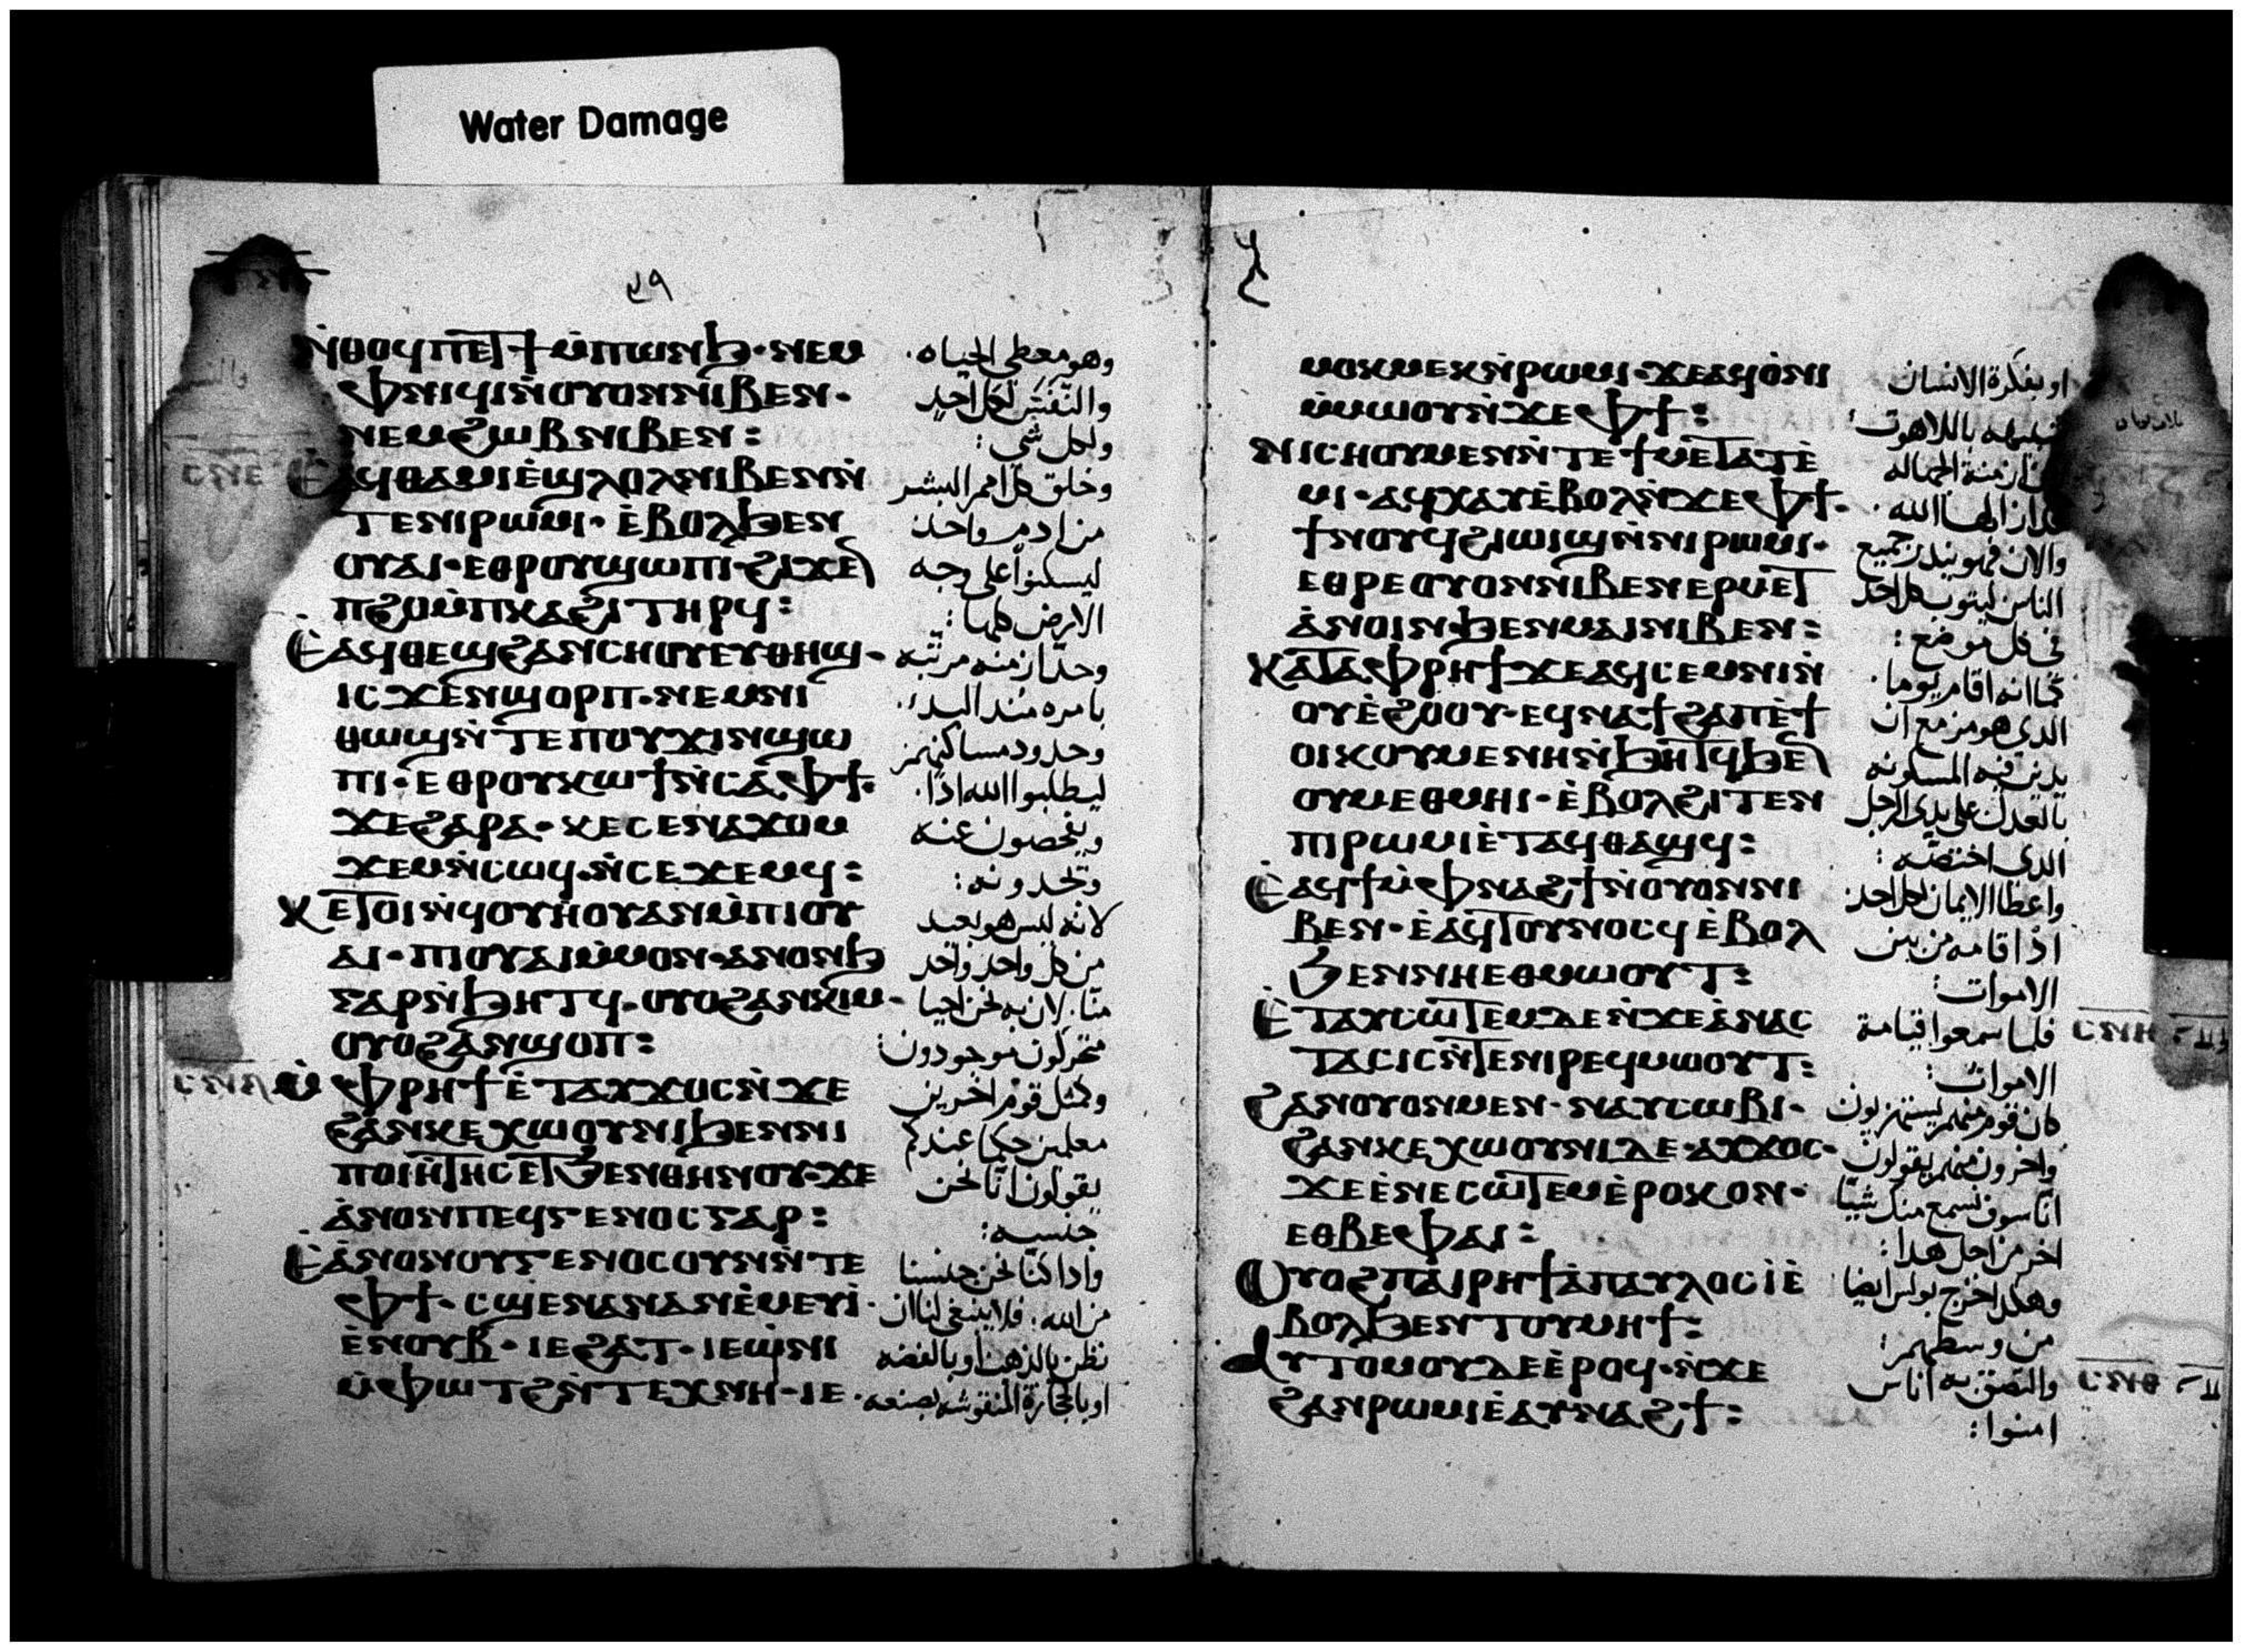 Water Damage
ⲛ̀ⲑⲟϥ ⲡⲉⲧϯ ⲙ̀ⲡⲱⲛϧ · ⲛⲉⲙ
ⲫⲛⲓϥⲓ ⲛ̀ⲟⲩⲟⲛ ⲛⲓⲃⲉⲛ ·
ⲛⲉⲙ ϩⲱⲃ ⲛⲓⲃⲉⲛ :
ⲉ̀ϥⲑⲁⲙⲓⲉ̀ ϣⲗⲟⲗ ⲛⲓⲃⲉⲛ ⲛ̀
ⲧⲉ ⲛⲓⲣⲱⲙⲓ · ⲉ̀ⲃⲟⲗ ϧⲉⲛ
ⲟⲩⲁⲓ · ⲉⲑⲣⲟⲩϣⲱⲡⲓ ϩⲓϫⲉⲛ
ⲡϩⲟ ⲙ̀ⲡⲕⲁϩⲓ ⲧⲏⲣϥ :
ⲉ̀ⲁϥⲑⲉϣ ϩⲁⲛⲥⲏⲟⲩ ⲉⲩⲑⲏϣ ·
ⲓⲥϫⲉⲛ ϣⲟⲣⲡ · ⲛⲉⲙ ⲛⲓ
ⲑⲱϣ ⲛ̀ⲧⲉ ⲡⲟⲩϫⲓⲛϣⲱ
ⲡⲓ · ⲉⲑⲣⲟⲩⲕⲱϯ ⲛ̀ⲥⲁ ⲫϯ ·
ϫⲉ ϩⲁⲣⲁ · ⲕⲉ ⲥⲉⲛⲁϫⲟⲙ
ϫⲉⲙ ⲛ̀ⲥⲱϥ · ⲛ̀ⲥⲉϫⲉⲙϥ :
ⲕⲉⲧⲟⲓ ⲛ̀ϥⲟⲩⲏⲟⲩ ⲁⲛ ⲙ̀ⲡⲓⲟⲩ
ⲁⲓ · ⲡⲓⲟⲩⲁⲓ ⲙ̀ⲙⲟⲛ · ⲁⲛⲟⲛϧ
ⲅⲁⲣ ⲛ̀ϧⲏⲧϥ · ⲟⲩⲟϩ ⲁⲛⲕⲓⲙ ·
ⲟⲩⲟϩ ⲁⲛϣⲟⲡ :
ⲙ̀ⲫⲣⲏϯ ⲉ̀ⲧⲁⲩϫⲟⲥ ⲛ̀ϫⲉ
ϩⲁⲛⲕⲉⲭⲱⲟⲩⲛⲓ ϧⲉⲛ ⲛⲓ
ⲡⲟⲓⲏⲧⲏⲥ ⲉⲧϧⲉⲛ ⲑⲏⲛⲟⲩ · ϫⲉ
ⲁ̀ⲛⲟⲛ ⲡⲉϥⲅⲉⲛⲟⲥ ⲅⲁⲣ :
ⲉ̀ⲁⲛⲟⲛ ⲟⲩⲅⲉⲛⲟⲥ ⲟⲩⲛ ⲛ̀ⲧⲉ
ⲫϯ · ⲥϣⲉ ⲛⲁⲛ ⲁⲛ ⲉ̀ⲙⲉⲩⲓ̀ ·
ⲉ̀ⲛⲟⲩⲃ · ⲓⲉ ϩⲁⲧ · ⲓⲉ ⲱ̀ⲛⲓ
ⲙ̀ⲫⲱⲧϩ ⲛ̀ⲧⲉⲭⲛⲏ · ⲓⲉ ·
وهو معطي الحياه .
والنفس لكل احد
ولكل شي :
وخلق كل امم البشر
من ادم واحد
ليسكنوا على وجه
الارض كلها :
وحد ازمنه مرتبه
بامره منذ البدء .
وحدود مساكنهم
ليطلبوا الله اذا .
ويفحصون عنه
وتجدونه :
لانه ليس هو بعيد
من كل واحد واحد
منا . لان به نحن احيا
متحركون موجودون :
وكمثل قوم اخرين
معلمين حكما عندكم
يقولون انا نحن
جنسه :
واذا كنا نحن جنسنا
من الله . فلا ينبغي لنا ان
نظن بالذهب او بالفضه
او بالحجارة المنقوشه بصنعه
ⲙⲟⲕⲙⲉⲕ ⲛ̀ⲣⲱⲙⲓ · ϫⲉ ⲁϥⲟ̀ⲛⲓ
ⲙ̀ⲙⲱⲟⲩ ⲛ̀ϫⲉ ⲫϯ :
ⲛⲓⲥⲏⲟⲩ ⲙⲉⲛ ⲛ̀ⲧⲉ ϯⲙⲉⲧⲁⲧⲉ̀
ⲙⲓ · ⲁϥⲭⲁⲩ ⲉ̀ⲃⲟⲗ ⲛ̀ϫⲉ ⲫϯ ·
ϯⲛⲟⲩ ϥϩⲓⲱⲓϣ ⲛ̀ⲛⲓⲣⲱⲙⲓ ·
ⲉⲑⲣⲉ ⲟⲩⲟⲛ ⲛⲓⲃⲉⲛ ⲉⲣⲙⲉⲧ
ⲁ̀ⲛⲟⲓⲛ · ϧⲉⲛ ⲙⲁⲓ ⲛⲓⲃⲉⲛ :
ⲕⲁⲧⲁ ⲫⲣⲏϯ ϫⲉ ⲁϥⲥⲉⲙⲛⲓ ⲛ̀
ⲟⲩⲉ̀ϩⲟⲟⲩ · ⲉϥⲛⲁϯϩⲁⲡ ⲉ̀ϯ
ⲟⲓⲕⲟⲩⲙⲉⲛⲏ ⲛ̀ϧⲏⲧϥ ϧⲉⲛ
ⲟⲩⲙⲉⲑⲙⲏⲓ · ⲉ̀ⲃⲟⲗ ϩⲓⲧⲉⲛ
ⲡⲓⲣⲱⲙⲓ ⲉ̀ⲧⲁϥⲑⲁϣϥ :
ⲉ̀ⲁϥϯ ⲙ̀ⲫⲛⲁϩϯ ⲛ̀ⲟⲩⲟⲛ ⲛⲓ
ⲃⲉⲛ · ⲉ̀ⲁϥⲧⲟⲩⲛⲟⲥϥ ⲉ̀ⲃⲟⲗ
ϧⲉⲛ ⲛⲏⲉⲑⲙⲱⲟⲩⲧ :
ⲉ̀ⲧⲁⲩⲥⲱⲧⲉⲙ ⲇⲉ ⲛ̀ϫⲉ ⲁ̀ⲛⲁⲥ
ⲧⲁⲥⲓⲥ ⲛ̀ⲧⲉ ⲛⲓⲣⲉϥⲙⲱⲟⲩⲧ :
ϩⲁⲛⲟⲩⲟⲛ ⲙⲉⲛ · ⲛⲁⲩⲥⲱⲃⲓ ·
ϩⲁⲛⲕⲉⲭⲱⲟⲩⲛⲓ ⲇⲉ · ⲁⲩϫⲟⲥ ·
ϫⲉ ⲉ̀ⲛⲉⲥⲱⲧⲉⲙ ⲉ̀ⲣⲟⲕ ⲟⲛ ·
ⲉⲑⲃⲉ ⲫⲁⲓ :
ⲟⲩⲟϩ ⲡⲁⲓⲣⲏϯ ⲁ̀ ⲡⲁⲩⲗⲟⲥ ⲓ̀ ⲉ̀
ⲃⲟⲗ ϧⲉⲛ ⲧⲟⲩⲙⲏϯ :
ⲁⲩⲧⲟⲙⲟⲩ ⲇⲉ ⲉ̀ⲣⲟϥ · ⲛ̀ϫⲉ
ϩⲁⲛⲣⲱⲙⲓ ⲉ̀ⲁⲩⲛⲁϩϯ :
او بفكرة الانسان
باللاهوت
ازمنة الجهاله
الله .
والان فهو ينذر جميع
الناس ليتوب كل احد
في كل موضع :
كما انه اقام يوما .
الذي هو مزمع ان
يدين فيه المسكونه
بالعدل على يدي الرجل
الذي اختصه :
واعطا الايمان لكل احد
اذ اقامه من بين
الاموات :
فلما سمعوا قيامة
الاموات :
كان قوم منهم يستهزيون
واخرون منهم يقولون
انا سوف نسمع منك شيا
اخر من اجل هذا :
وهكذا خرج بولس ايضا
من وسطهم :
والتصق به اناس
امنوا :